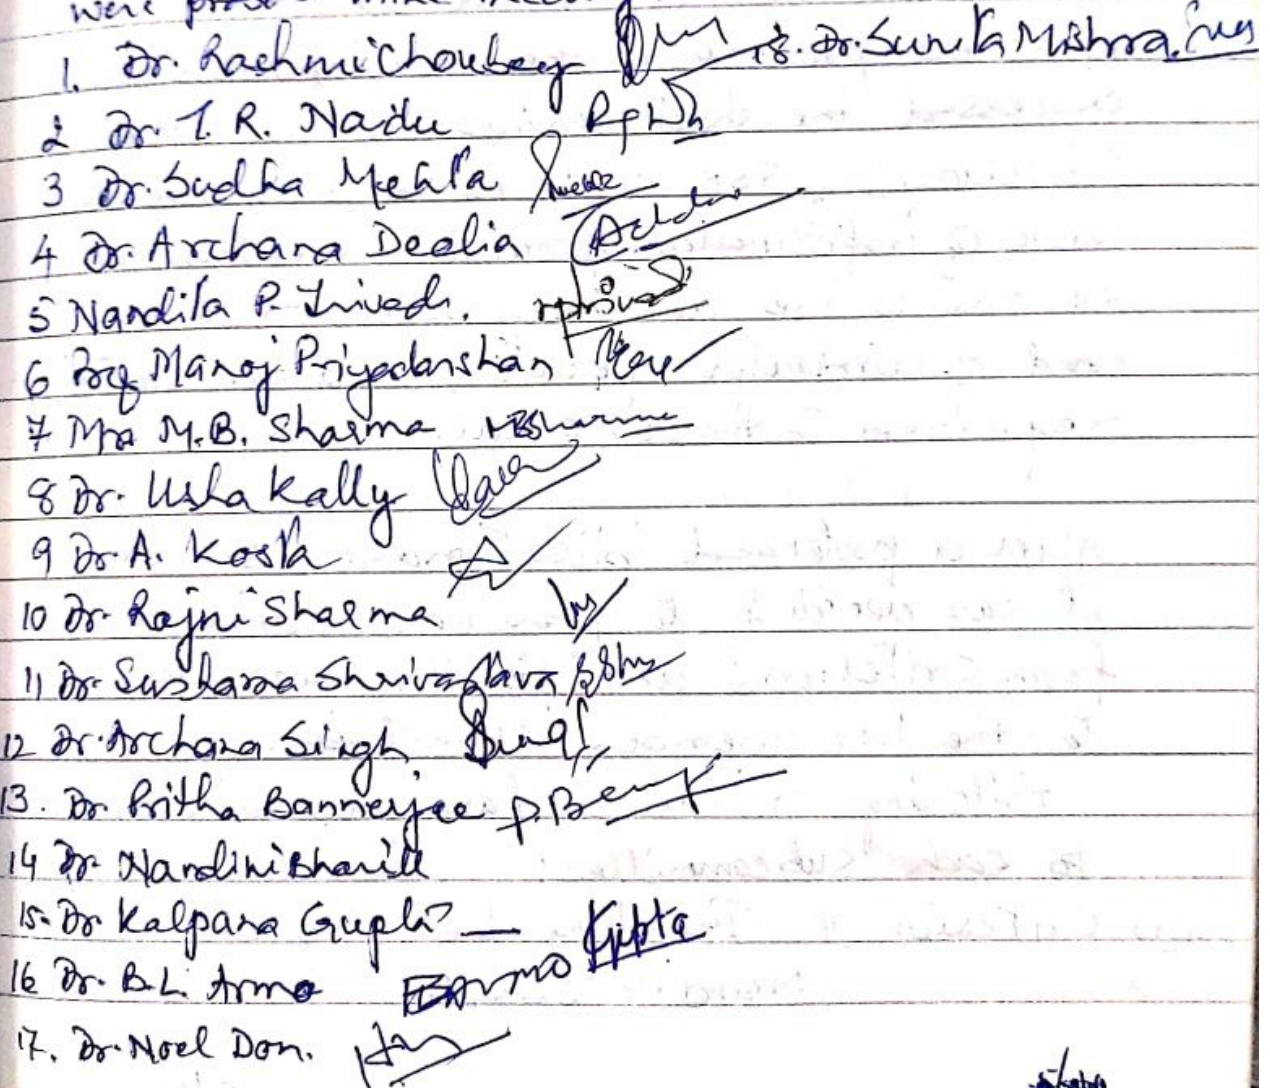 were
1. Dr. Rashmi Choubey 18. Dr. Sunita Mishra.
2 Dr. T. R. Naidu
3 Dr. Sudha Mehta
4 Dr. Archana Deolia
5 Nandita P. Trivedi.
6 Prof Manoj Priyadarshan
7 Mrs M.B. Sharma MBSharma
8 Dr. Usha Kally
9 Dr A. Kosta
10 Dr. Rajni Sharma
11 Dr. Sushama Shrivastava
12 Dr. Archana Singh
13. Dr Pritha Bannerjee
14 Dr. Nandini Bharill
15. Dr Kalpana Gupta — Gupta
16 Dr. B.L. Armo BArmo
17. Dr. Noel Don.